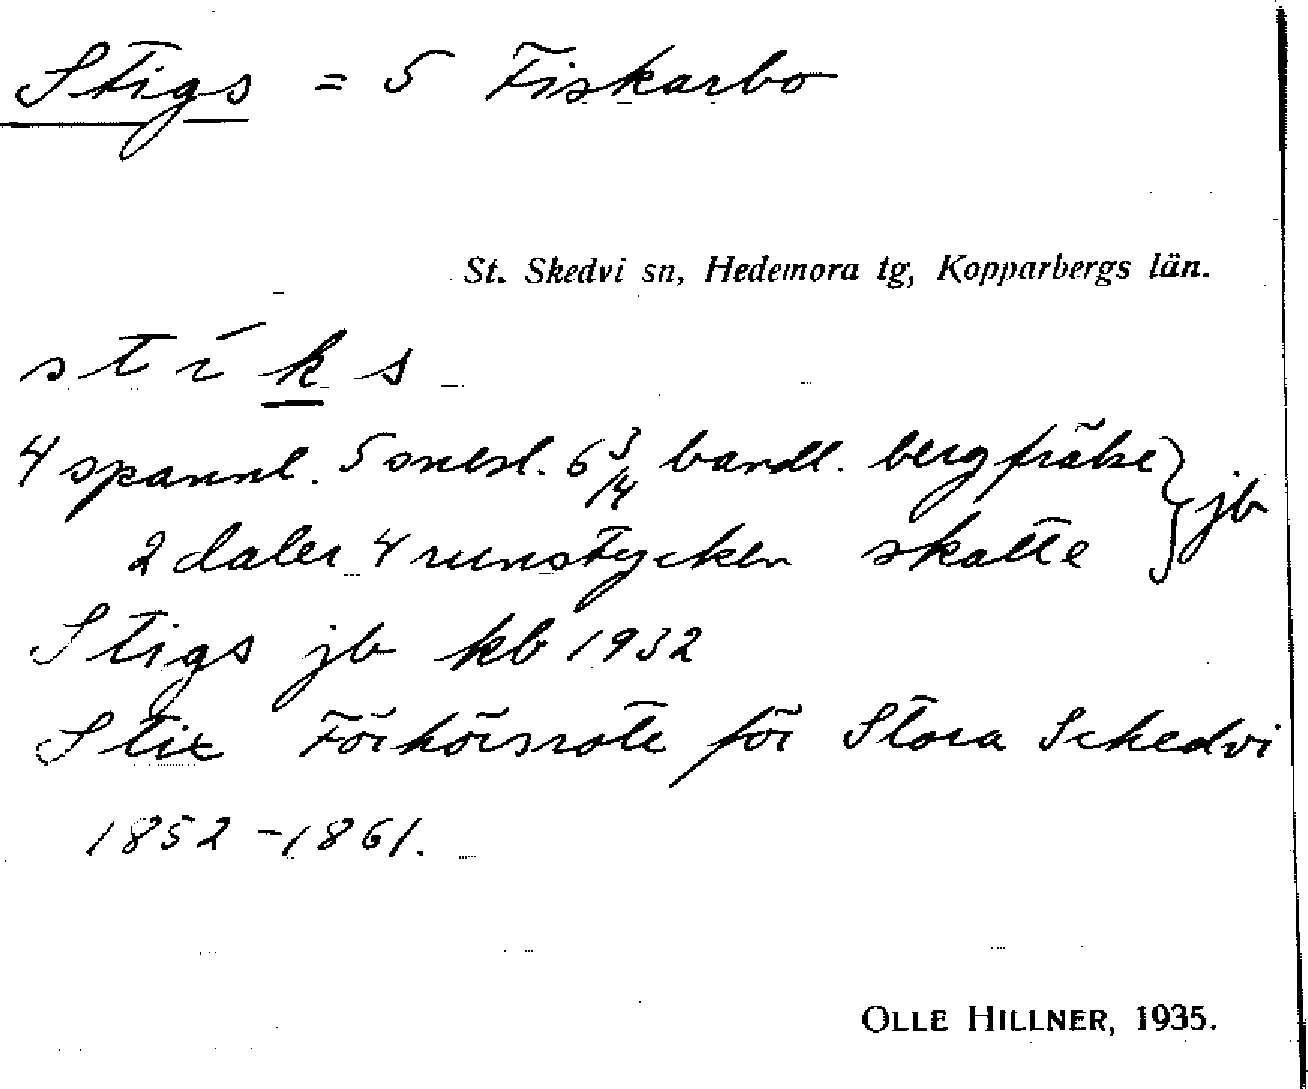 Stigs = 5 Fiskarbo
St. Skedvi sn, Hedemora tg, Kopparbergs län.
stíks
4 spannl. 5 snesl. 6 3/14 bandl. bergfrälse } jb
2 daler 4 runstycken skatte
Stigs jb kb 1932
Stix Förhörsrote för Stora Schedvi
1852-1861.
OLLE HILLNER, 1935.